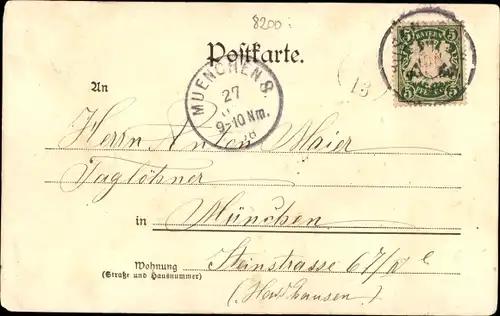 8200
Postkarte.
BAYERN
5 5
5 5
13
MUENCHEN 8.
27
9-10 Nm.
98
An
Herrn Anton Maier
Taglöhner
in München
Wohnung Steinstrasse 67/
(Straße und Hausnummer)
(Haidhausen)